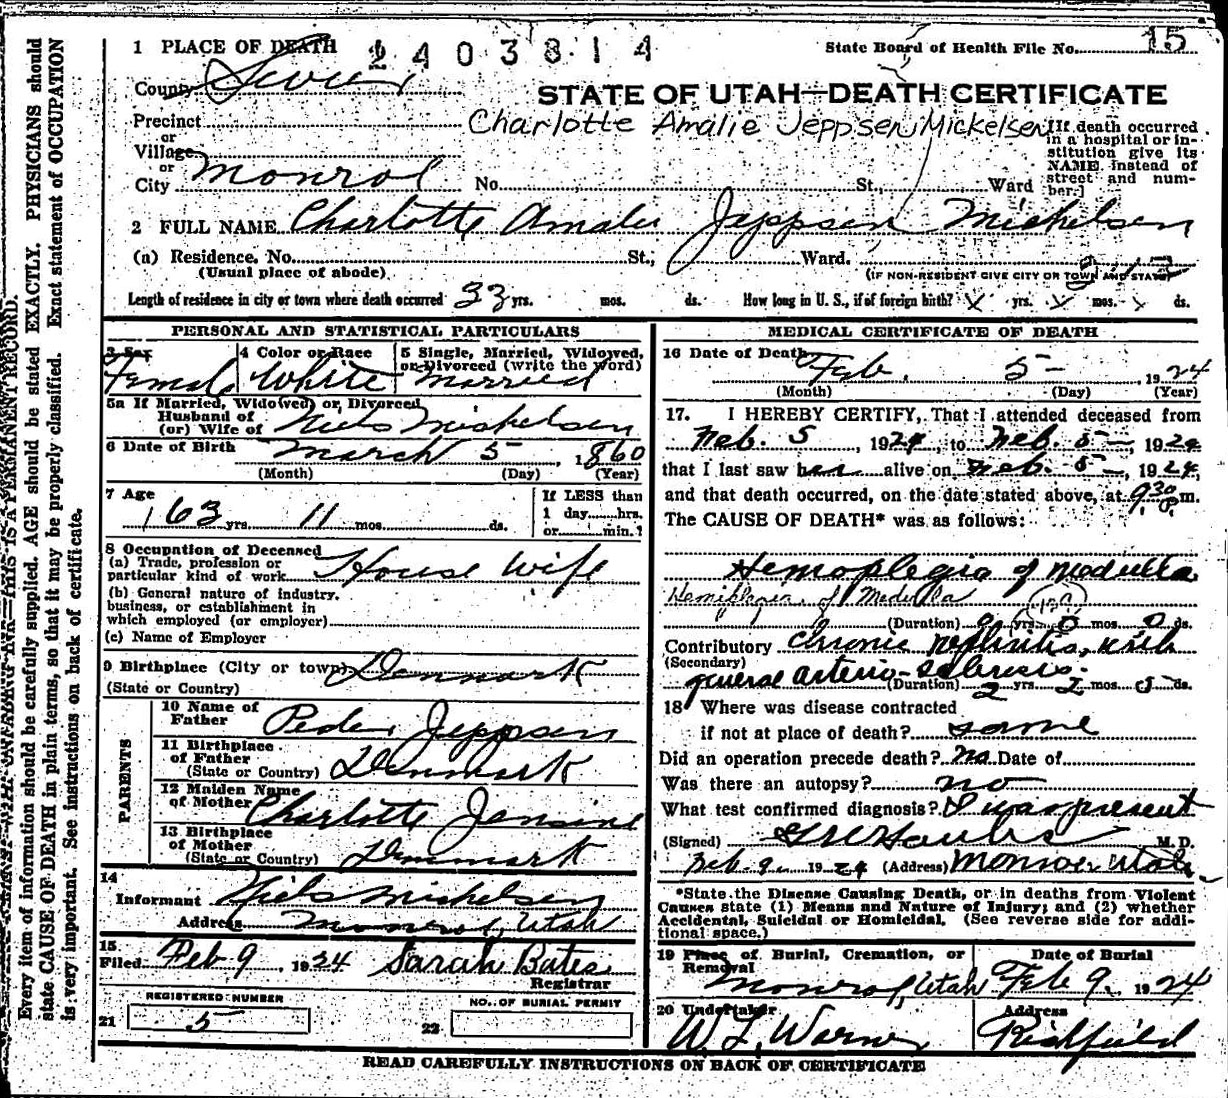 1 PLACE OF DEATH 2403814 State Board of Health File No. 15
County Sevier
STATE OF UTAH—DEATH CERTIFICATE
Precinct
Charlotte Amalie Jeppsen Mickelsen
or
Village
or
City Monroe No. St., Ward
[If death occurred in a hospital or institution give its NAME instead of street and number.]
2 FULL NAME Charlotte Amalie Jeppsen Mickelsen
(a) Residence. No. St., Ward.
(Usual place of abode) (IF NON-RESIDENT GIVE CITY OR TOWN AND STATE)
Length of residence in city or town where death occurred 33 yrs. mos. ds. How long in U. S., if of foreign birth? x yrs. x mos. x ds.
PERSONAL AND STATISTICAL PARTICULARS
3 Sex Female
4 Color or Race White
5 Single, Married, Widowed, or Divorced (write the word) Married
5a If Married, Widowed, or Divorced
Husband of
(or) Wife of Niels Mickelsen
6 Date of Birth March 5 1860
(Month) (Day) (Year)
7 Age 63 yrs. 11 mos. ds.
If LESS than
1 day.....hrs.
or.....min.?
8 Occupation of Deceased
(a) Trade, profession or
particular kind of work House wife
(b) General nature of industry,
business, or establishment in
which employed (or employer)
(c) Name of Employer
9 Birthplace (City or town) Denmark
(State or Country)
PARENTS
10 Name of
Father Peder Jeppsen
11 Birthplace
of Father
(State or Country) Denmark
12 Maiden Name
of Mother Charlotte Jensine
13 Birthplace
of Mother
(State or Country) Denmark
14
Informant Niels Mickelsen
Address Monroe, Utah
15
Filed Feb 9, 1924 Sarah Bates
Registrar
REGISTERED NUMBER
21 5
NO. OF BURIAL PERMIT
22
MEDICAL CERTIFICATE OF DEATH
16 Date of Death
Feb. 5 1924
(Month) (Day) (Year)
17. I HEREBY CERTIFY, That I attended deceased from
Feb. 5, 1924, to Feb. 5, 1924
that I last saw her alive on Feb. 5, 1924,
and that death occurred, on the date stated above, at 9 30 P. m.
The CAUSE OF DEATH* was as follows:
Hemoplegia of Medulla
Hemiplegia of Medulla
(Duration) 0 yrs. 0 mos. 0 ds.
Contributory Chronic nephritis, with
(Secondary)
general arterio-sclerosis.
(Duration) 2 yrs. 2 mos. 5 ds.
18 Where was disease contracted
if not at place of death? same
Did an operation precede death? no Date of
Was there an autopsy? no
What test confirmed diagnosis? I was present
(Signed) M. D.
Feb. 9, 1924 (Address) Monroe Utah
*State the Disease Causing Death, or in deaths from Violent
Causes state (1) Means and Nature of Injury; and (2) whether
Accidental, Suicidal or Homicidal. (See reverse side for addi-
tional space.)
19 Place of Burial, Cremation, or
Removal
Monroe, Utah
Date of Burial
Feb 9. 1924
20 Undertaker
W. L. Warner
Address
Richfield
READ CAREFULLY INSTRUCTIONS ON BACK OF CERTIFICATE
THIS IS A PERMANENT RECORD.
Every item of information should be carefully supplied. AGE should be stated EXACTLY. PHYSICIANS should
state CAUSE OF DEATH in plain terms, so that it may be properly classified. Exact statement of OCCUPATION
is very important. See instructions on back of certificate.